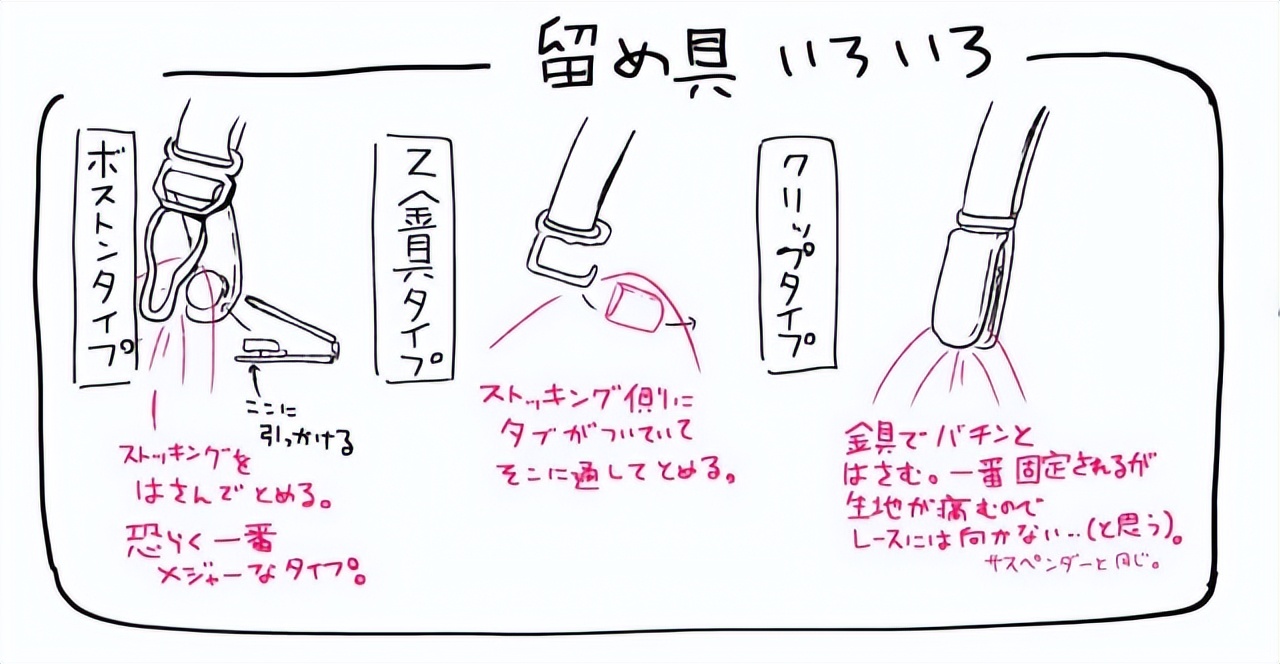 留め具いろいろ
ボストンタイプ
ここに
引っかける
ストッキングを
はさんでとめる。
恐らく一番
メジャーなタイプ。
Z金具タイプ
ストッキング側に
タブがついていて
そこに通してとめる。
クリップタイプ
金具でバチンと
はさむ。一番固定されるが
生地が痛むので
レースには向かない…(と思う)。
サスペンダーと同じ。